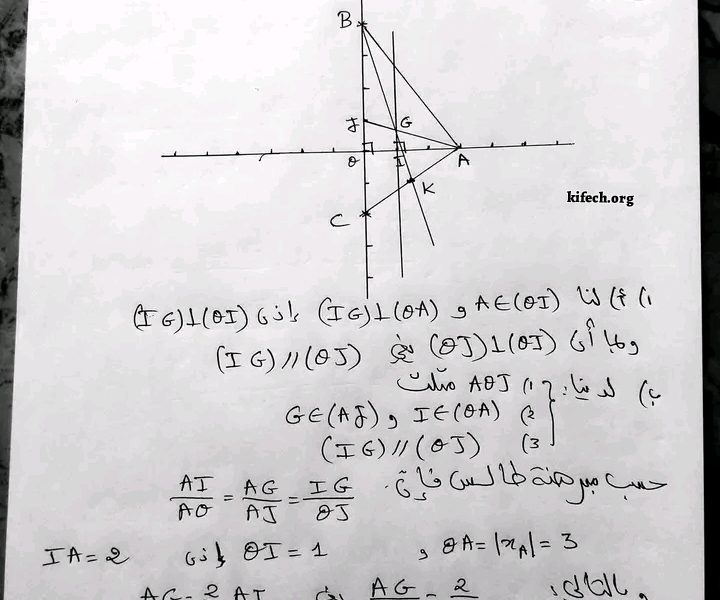 B
J
G
O
I
A
K
C
kifech.org
1) أ) لنا A∈(OI) و (IG)⊥(OA) إذن (IG)⊥(OI)
وبما أن (OJ)⊥(OI) فإن (IG)//(OJ)
ب) لدينا: 1) AOJ مثلث
2) I∈(OA) و G∈(AJ)
3) (IG)//(OJ)
حسب مبرهنة طالس فإن AI/AO = AG/AJ = IG/OJ
و OA=|x_A|=3 OI=1 إذن IA=2
وبالتالي: AG/ = 2/ AG = 2 AJ